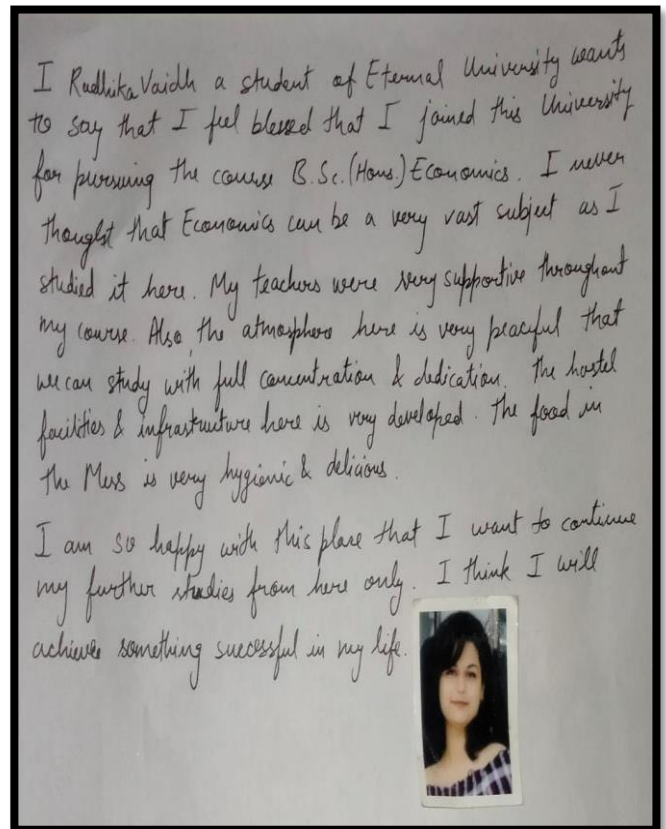 I Radhika Vaidh a student of Eternal University wants
to say that I feel blessed that I joined this University
for pursuing the course B.Sc.(Hons.) Economics. I never
thought that Economics can be a very vast subject as I
studied it here. My teachers were very supportive throughout
my course. Also, the atmosphere here is very peaceful that
we can study with full concentration & dedication. The hostel
facilities & infrastructure here is very developed. The food in
the Mess is very hygienic & delicious.
I am so happy with this place that I want to continue
my further studies from here only. I think I will
achieve something successful in my life.